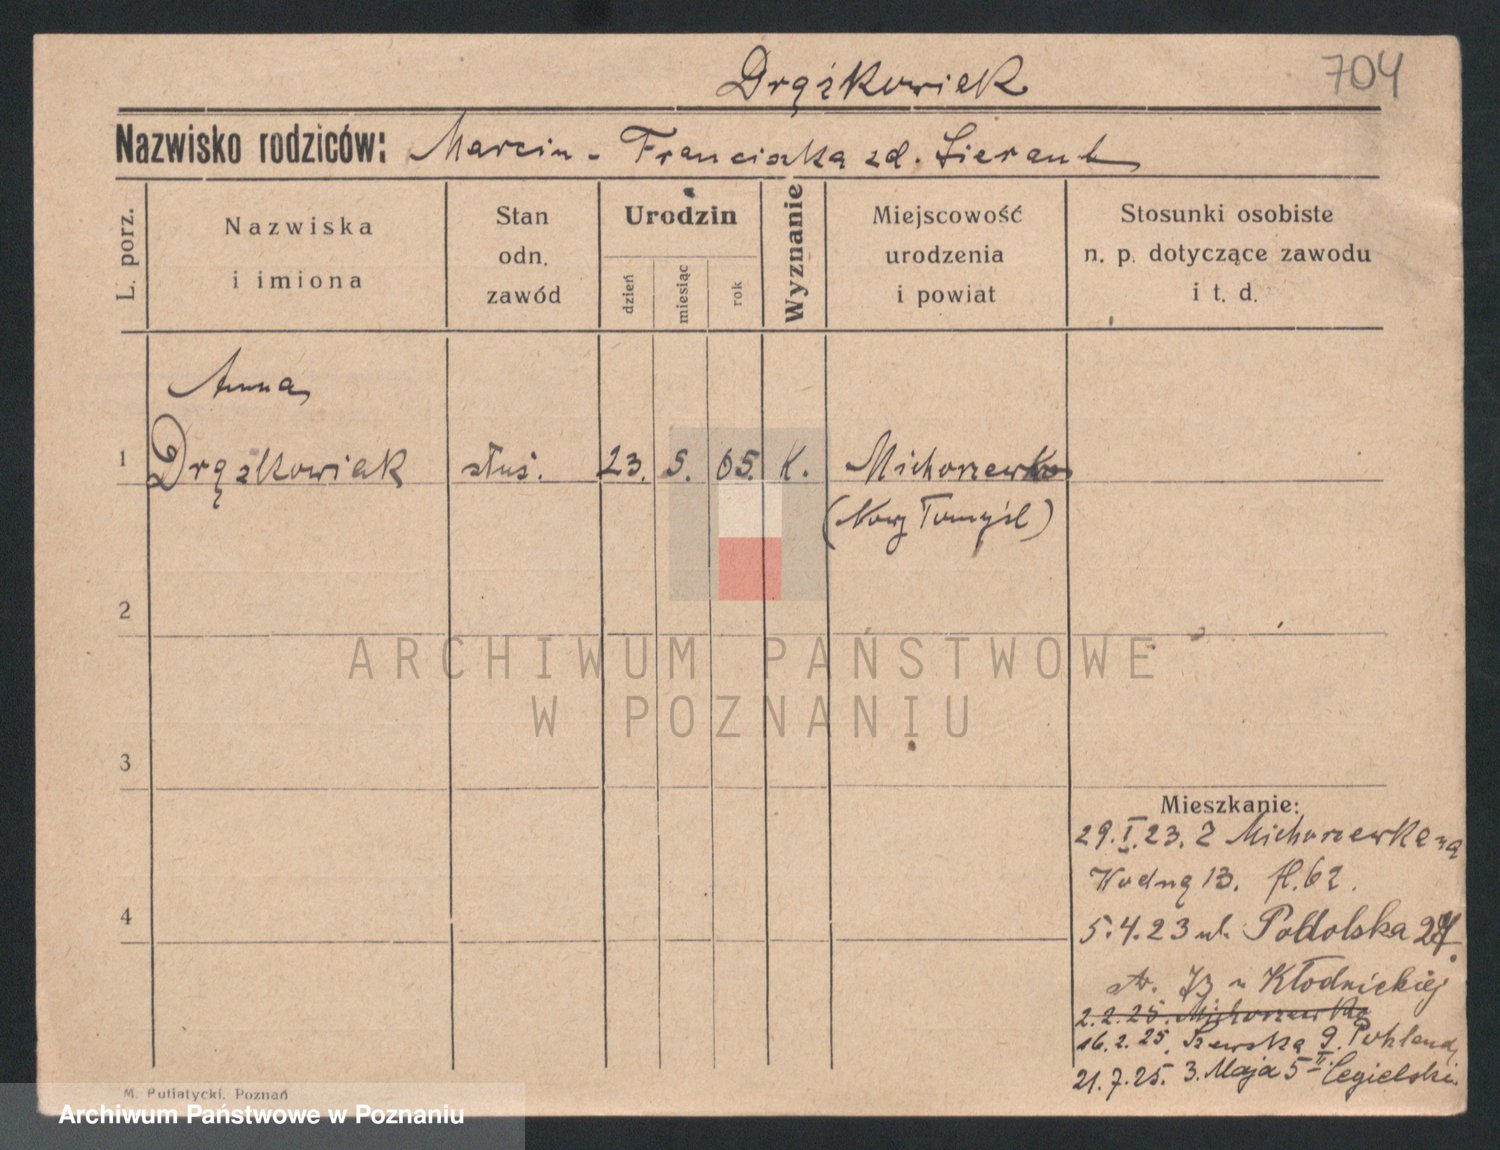 Drążkowiak
704
Nazwisko rodziców: Marcin - Franciszka zd. Lierant
L. porz.
Nazwiska
i imiona
Stan
odn.
zawód
Urodzin
dzień
miesiąc
rok
Wyznanie
Miejscowość
urodzenia
i powiat
Stosunki osobiste
n. p. dotyczące zawodu
i t. d.
Anna
1 Drążkowiak służ. 23. 5. 65. K. Michorzewko
(Nowy Tomyśl)
2
ARCHIWUM PAŃSTWOWE
W POZNANIU
3
Mieszkanie:
29.I.23. Z Michorzewka na
Wodną 13.
4
5.4.23 ul. Podolska
Kłodnickiej
2.2.25. Michorzewko
16.2.25. Szewska 9.
21.7.25. 3. Maja 5 II Cegielski.
M. Putiatycki, Poznań
Archiwum Państwowe w Poznaniu